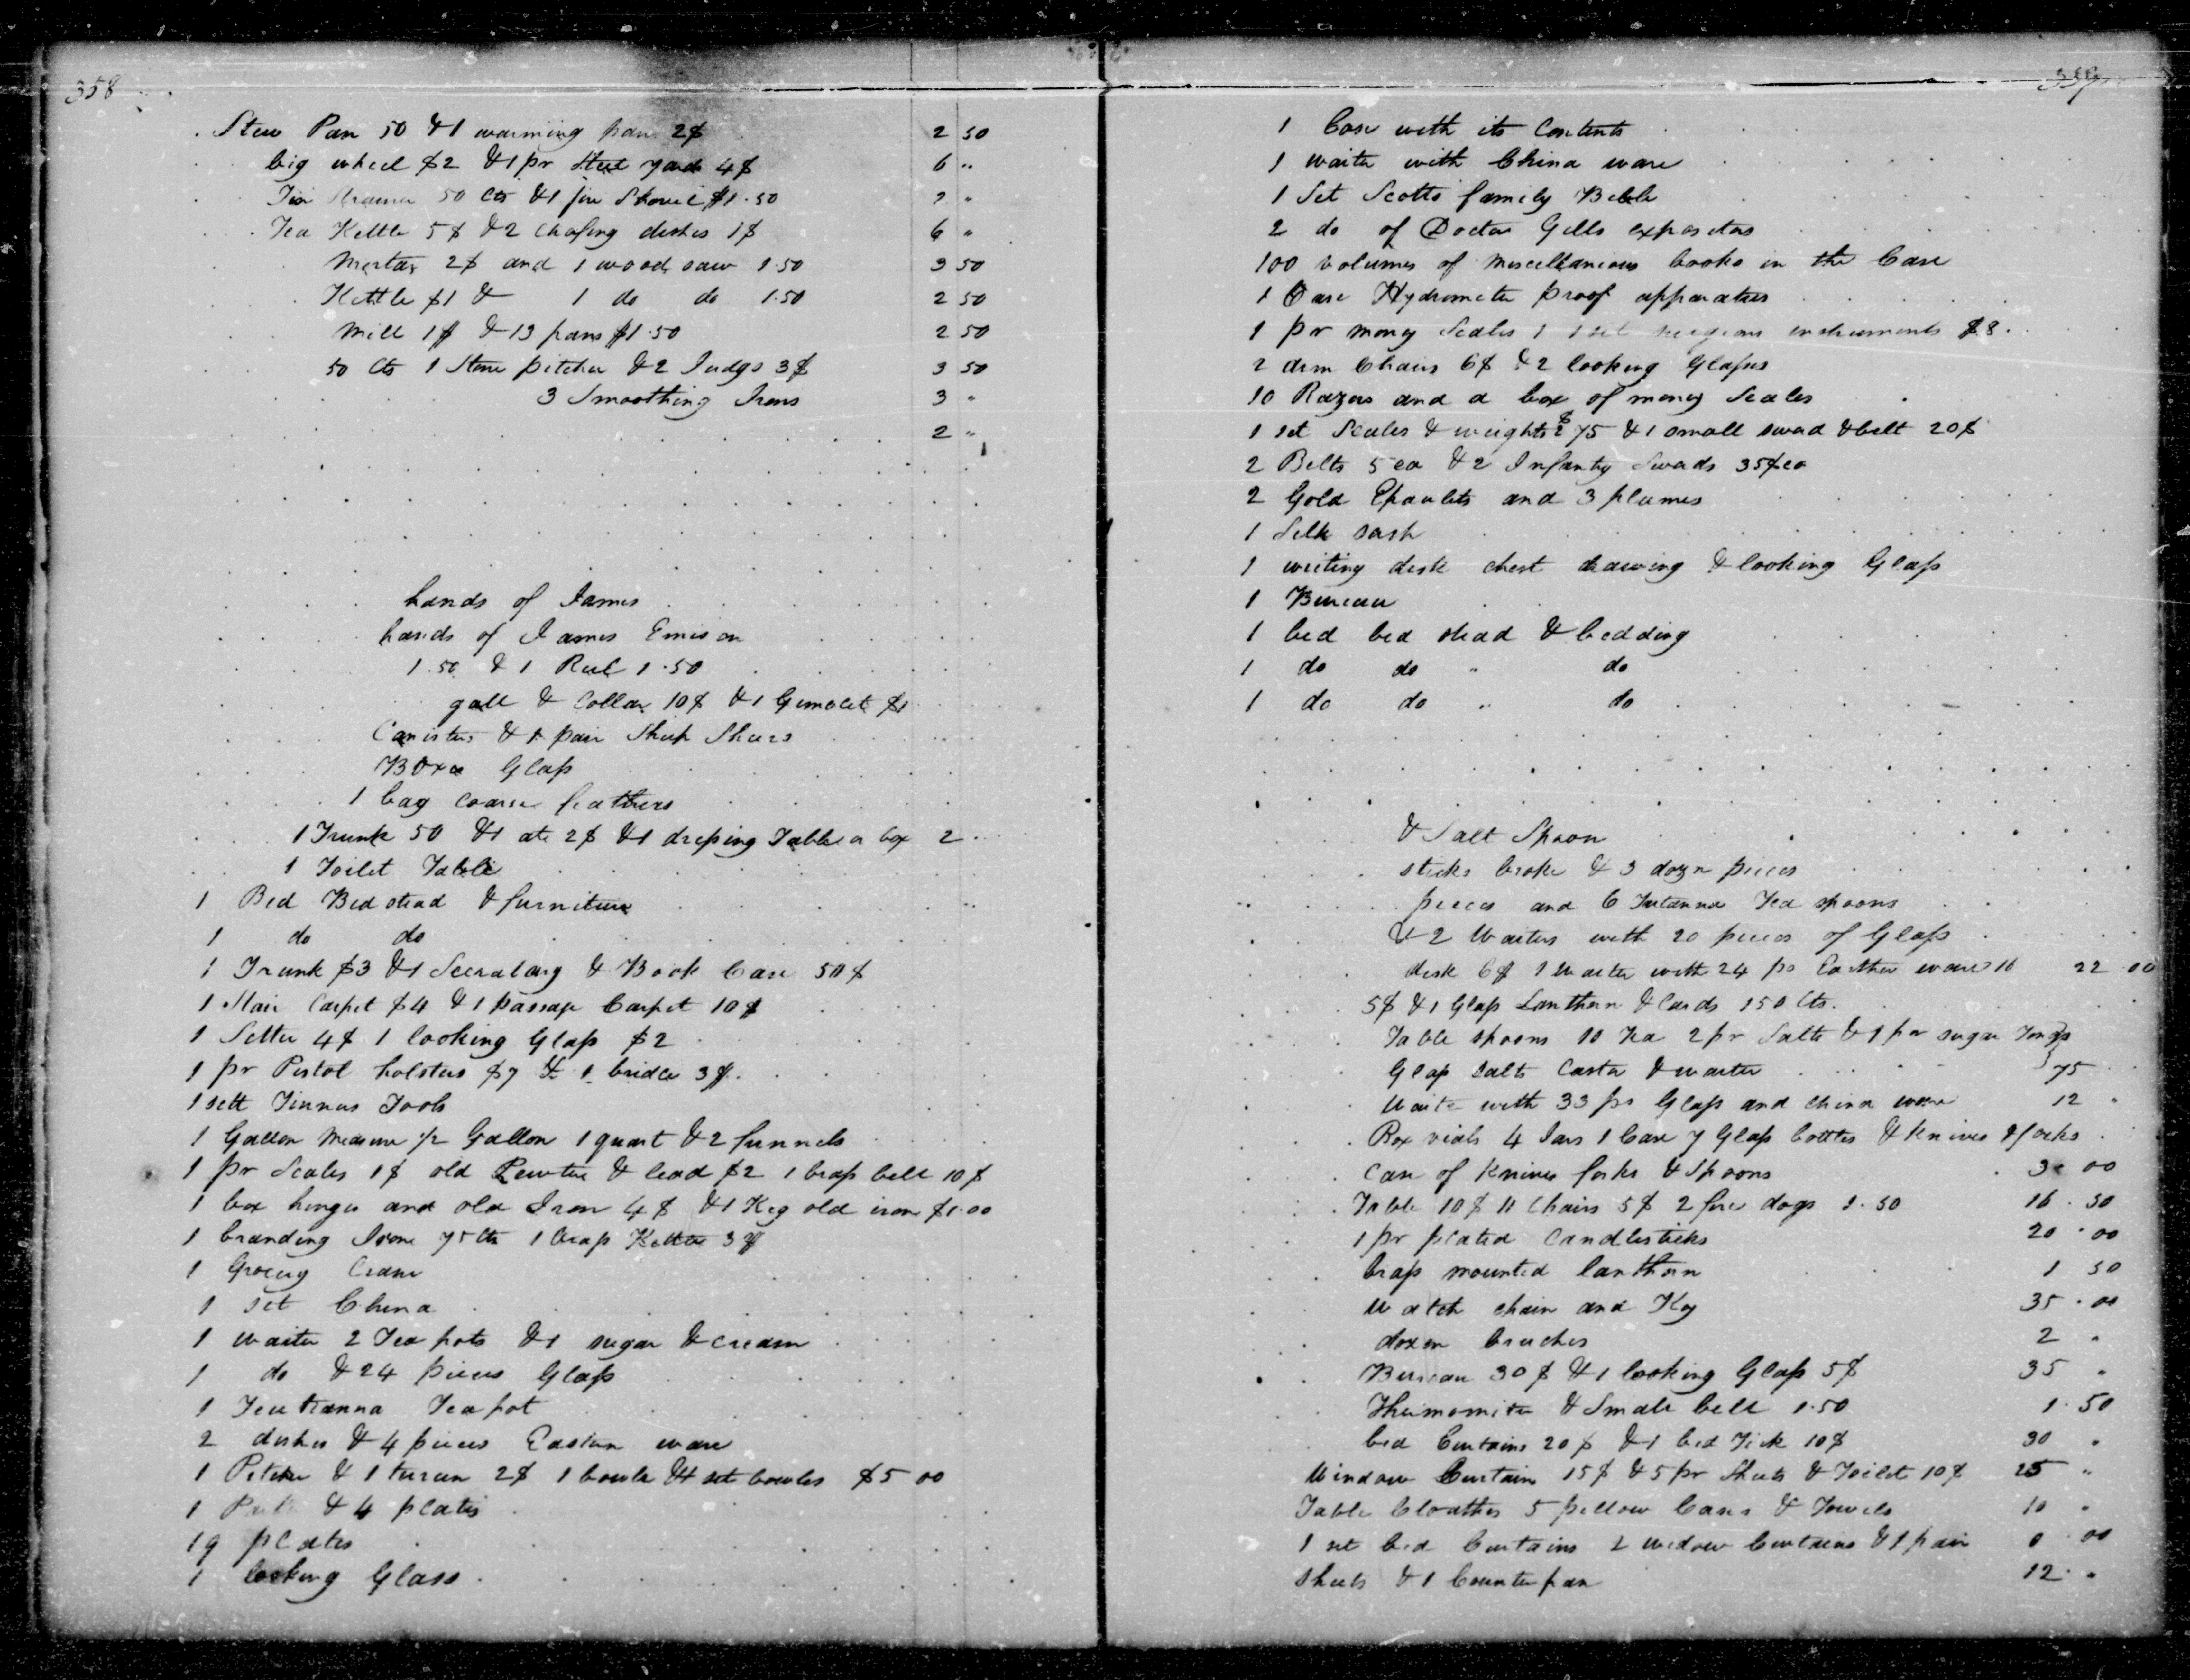 358
Stew Pan 50 & 1 warming pan 2$ 2 50
big wheel $2 & 1 pr Steel yards 4$ 6 "
Tin Strainer 50 Cts & 1 fire Shovel $1.50 2 "
Tea Kettle 5$ & 2 Chafing dishes 1$ 6 "
Mortar 2$ and 1 wood saw 1.50 3 50
Kettle $1 & 1 do do 1.50 2 50
Mill 1$ & 13 pans $1.50 2 50
50 Cts 1 Stone pitcher & 2 Judgs 3$ 3 50
3 Smoothing Irons 3 "
2 "
hands of James
hands of James Emison
1.50 & 1 Reel 1.50
& Collar 10$ & 1 Gimblet $1
Canisters & 1 pair Shiep Shears
Boxes Glass
1 bag coarse feathers
1 Trunk 50 & 1 ate 2$ & 1 dressing Table a box 2
1 Toilet Table
1 Bed Bedstead & furniture
1 do do
1 Trunk $3 & 1 Secratary & Book Case 50$
1 Stair Carpet $4 & 1 passage Carpet 10$
1 Settee 4$ 1 looking Glass $2
1 pr Pistol holsters $7 & 1 bridle 3$
1 sett Tinners Tools
1 Gallon Measure 1/2 Gallon 1 quart & 2 funnels
1 pr Scales 1$ old Pewter & lead $2 1 brass bell 10$
1 box hinges and old Iron 4$ & 1 Keg old iron $1.00
1 branding Irone 75 Cts 1 brass Kettle 3$
1 Grocery
1 set China
1 waiter 2 Tea pots & 1 sugar & cream
1 do & 24 pieces Glass
1 Teutanna Tea pot
2 dishes & 4 pieces Easton ware
1 Pitcher & 1 tureen 2$ 1 bowle & 1 set bowles $5 00
1 & 4 plates
19 plates
1 looking Glass
359
1 Case with its Contents
1 waiter with China ware
1 Set Scotts family Bible
2 do of Doctor Gills expositors
100 volumes of Miscellanious books in the Case
1 Case Hydrometer proof apparatus
1 pr money Scales 1 1 set surgeons instruments $8
2 arm Chairs 6$ & 2 looking Glasses
10 Razors and a box of money Scales
1 set Scales & weights $2 75 & 1 small sword & belt 20$
2 Belts 5 ea & 2 Infantry Swords 35$ ea
2 Gold Epaulets and 3 plumes
1 Silk sash
1 writing desk chest drawing & looking Glass
1 Bureau
1 bed bed stead & bedding
1 do do " do
1 do do " do
& Salt Spoon
sticks broke & 3 dozn pieces
pieces and 6 Tutanna Tea spoons
& 2 Waiters with 20 pieces of Glass
desk 6$ 1 waiter with 24 ps Earthen ware 16 22 00
5$ & 1 Glass Lanthern & Cards 150 Cts.
Table spoons 10 Tea 2 pr Salts & 1 pr sugar Tongs
Glass Salts Castor & waiter 75
Waiter with 33 ps Glass and China ware 12 "
Box vials 4 Jars 1 Case 7 Glass bottles & Knives & forks
Case of Knives forks & Spoons 30 00
Table 10$ 11 Chairs 5$ 2 fire dogs 1.50 16.50
1 pr plated Candlesticks 20.00
brass mounted lanthorn 1 50
Watch chain and Key 35.00
dozen brushes 2 "
Bureau 30$ & 1 looking Glass 5$ 35 "
Thermomiter & Small bell 1.50 1.50
bed Curtains 20$ & 1 bed Tick 10$ 30 "
Window Curtains 15$ & 5 pr Sheets & Toilet 10$ 25 "
Table Cloathes 5 pillow Cases & Towels 10 "
1 set bed Curtains 2 widow Curtains & 1 pair 0.00
Sheets & 1 Counterpan 12 "